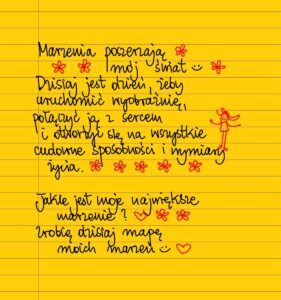 Marzenia poszerzają
mój świat
Dzisiaj jest dzień, żeby
uruchomić wyobraźnię,
połączyć ją z sercem
i otworzyć się na wszystkie
cudowne sposobności i wymiary
życia.
Jakie jest moje największe
marzenie?
Zrobię dzisiaj mapę
moich marzeń